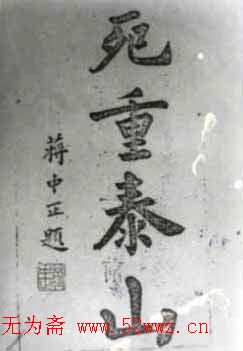 死重泰山
蒋中正題
无为斋 www.52wwz.cn